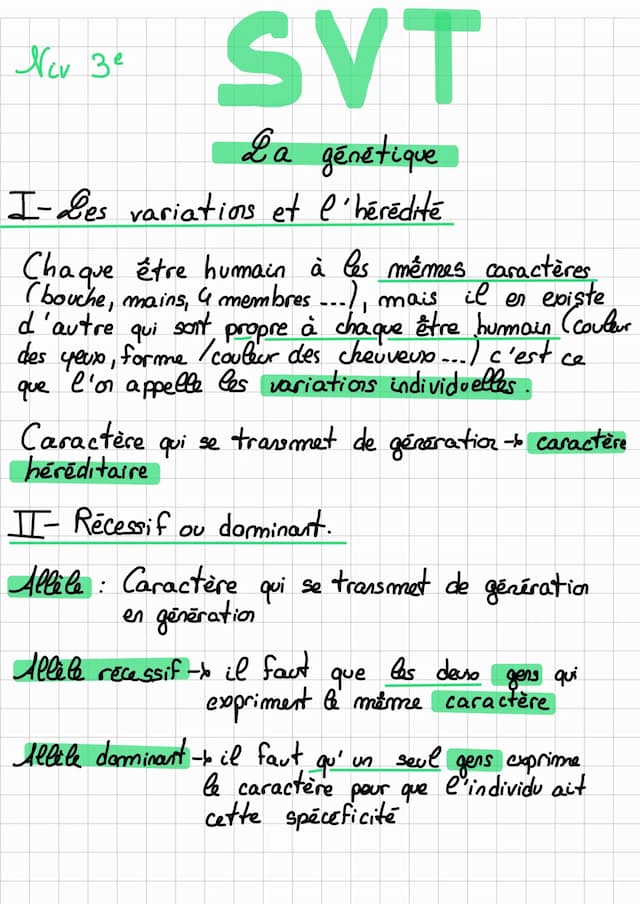 Niv 3e
SVT
La génétique
I- Les variations et l'hérédité
Chaque être humain à les mêmes caractères
(bouche, mains, 4 membres ...), mais il en existe
d'autre qui sont propre à chaque être humain (couleur
des yeux, forme /couleur des cheuveux ...) c'est ce
que l'on appelle les variations individuelles.
Caractère qui se transmet de génération → caractère
héréditaire
II- Récessif ou dominant.
Allèle : Caractère qui se transmet de génération
en génération
Allèle récessif → il faut que les deux gens qui
expriment le même caractère
Allèle dominant → il faut qu'un seul gens exprime
le caractère pour que l'individu ait
cette spéceficité